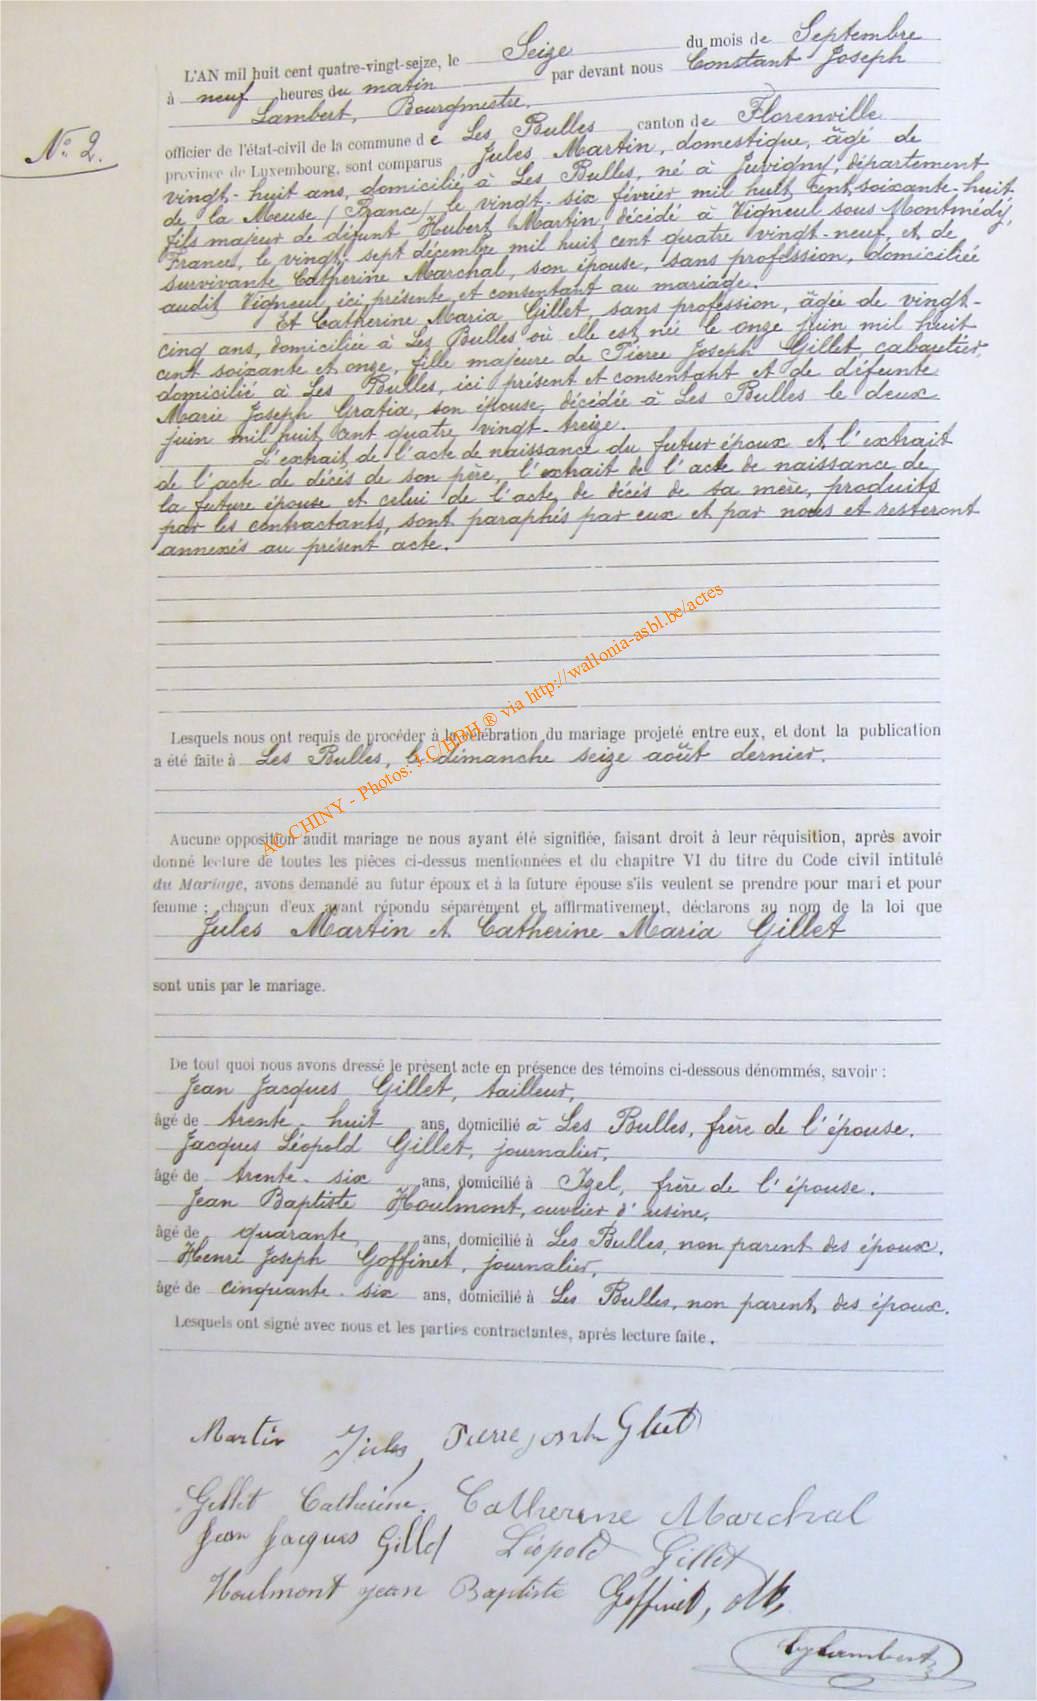 L'AN mil huit cent quatre-vingt-seize, le Seize du mois de Septembre
à neuf heures du matin par devant nous Constant Joseph
Lambert, Bourgmestre,
officier de l'état-civil de la commune de Les Bulles canton de Florenville
N° 2.
province de Luxembourg, sont comparus Jules Martin, domestique, âgé de
vingt-huit ans, domicilié à Les Bulles, né à Juvigny, département
de la Meuse (France) le vingt-six février mil huit cent soixante-huit
fils majeur de défunt Hubert Martin, décidé à Vigneul sous-Montmédy,
France, le vingt-sept décembre mil huit cent quatre vingt-neuf, et de
survivante Catherine Marchal, son épouse, sans profession, domiciliée
audit Vigneul, ici présente et consentant au mariage.
Et Catherine Maria Gillet, sans profession, âgée de vingt-
cinq ans, domiciliée à Les Bulles où elle est née le onze juin mil huit
cent soixante et onze, fille majeure de Pierre Joseph Gillet cabaretier,
domicilié à Les Bulles, ici présent et consentant et de défunte
Marie Joseph Gratia, son épouse, décédée à Les Bulles le deux
juin mil huit cent quatre vingt-treize.
L'extrait de l'acte de naissance du futur époux et l'extrait
de l'acte de décès de son père, l'extrait de l'acte de naissance de
la future épouse et celui de l'acte de décès de sa mère, produits
par les contractants, sont paraphés par eux et par nous et resteront
annexés au présent acte.
AC CHINY - Photos: J.C/HBH ® via http://wallonia-asbl.be/actes
Lesquels nous ont requis de procéder à la célébration du mariage projeté entre eux, et dont la publication
a été faite à Les Bulles, le dimanche seize août dernier.
Aucune opposition audit mariage ne nous ayant été signifiée, faisant droit à leur réquisition, après avoir
donné lecture de toutes les pièces ci-dessus mentionnées et du chapitre VI du titre du Code civil intitulé
du Mariage, avons demandé au futur époux et à la future épouse s'ils veulent se prendre pour mari et pour
femme ; chacun d'eux ayant répondu séparément et affirmativement, déclarons au nom de la loi que
Jules Martin et Catherine Maria Gillet
sont unis par le mariage.
De tout quoi nous avons dressé le présent acte en présence des témoins ci-dessous dénommés, savoir :
Jean Jacques Gillet, tailleur,
âgé de trente-huit ans, domicilié à Les Bulles, frère de l'épouse.
Jacques Léopold Gillet, journalier,
âgé de trente-six ans, domicilié à Izel, frère de l'épouse.
Jean Baptiste Houlmont, ouvrier d'usine,
âgé de quarante ans, domicilié à Les Bulles, non parent des époux.
Henri Joseph Goffinet, journalier,
âgé de cinquante-six ans, domicilié à Les Bulles, non parent des époux.
Lesquels ont signé avec nous et les parties contractantes, après lecture faite.
Martin Jules, Pierre joseph Gillet
Gillet Catherine. Catherine Marchal
Jean Jacques Gillet Léopold Gillet
Houlmont jean Baptiste Goffinet,
Lambert